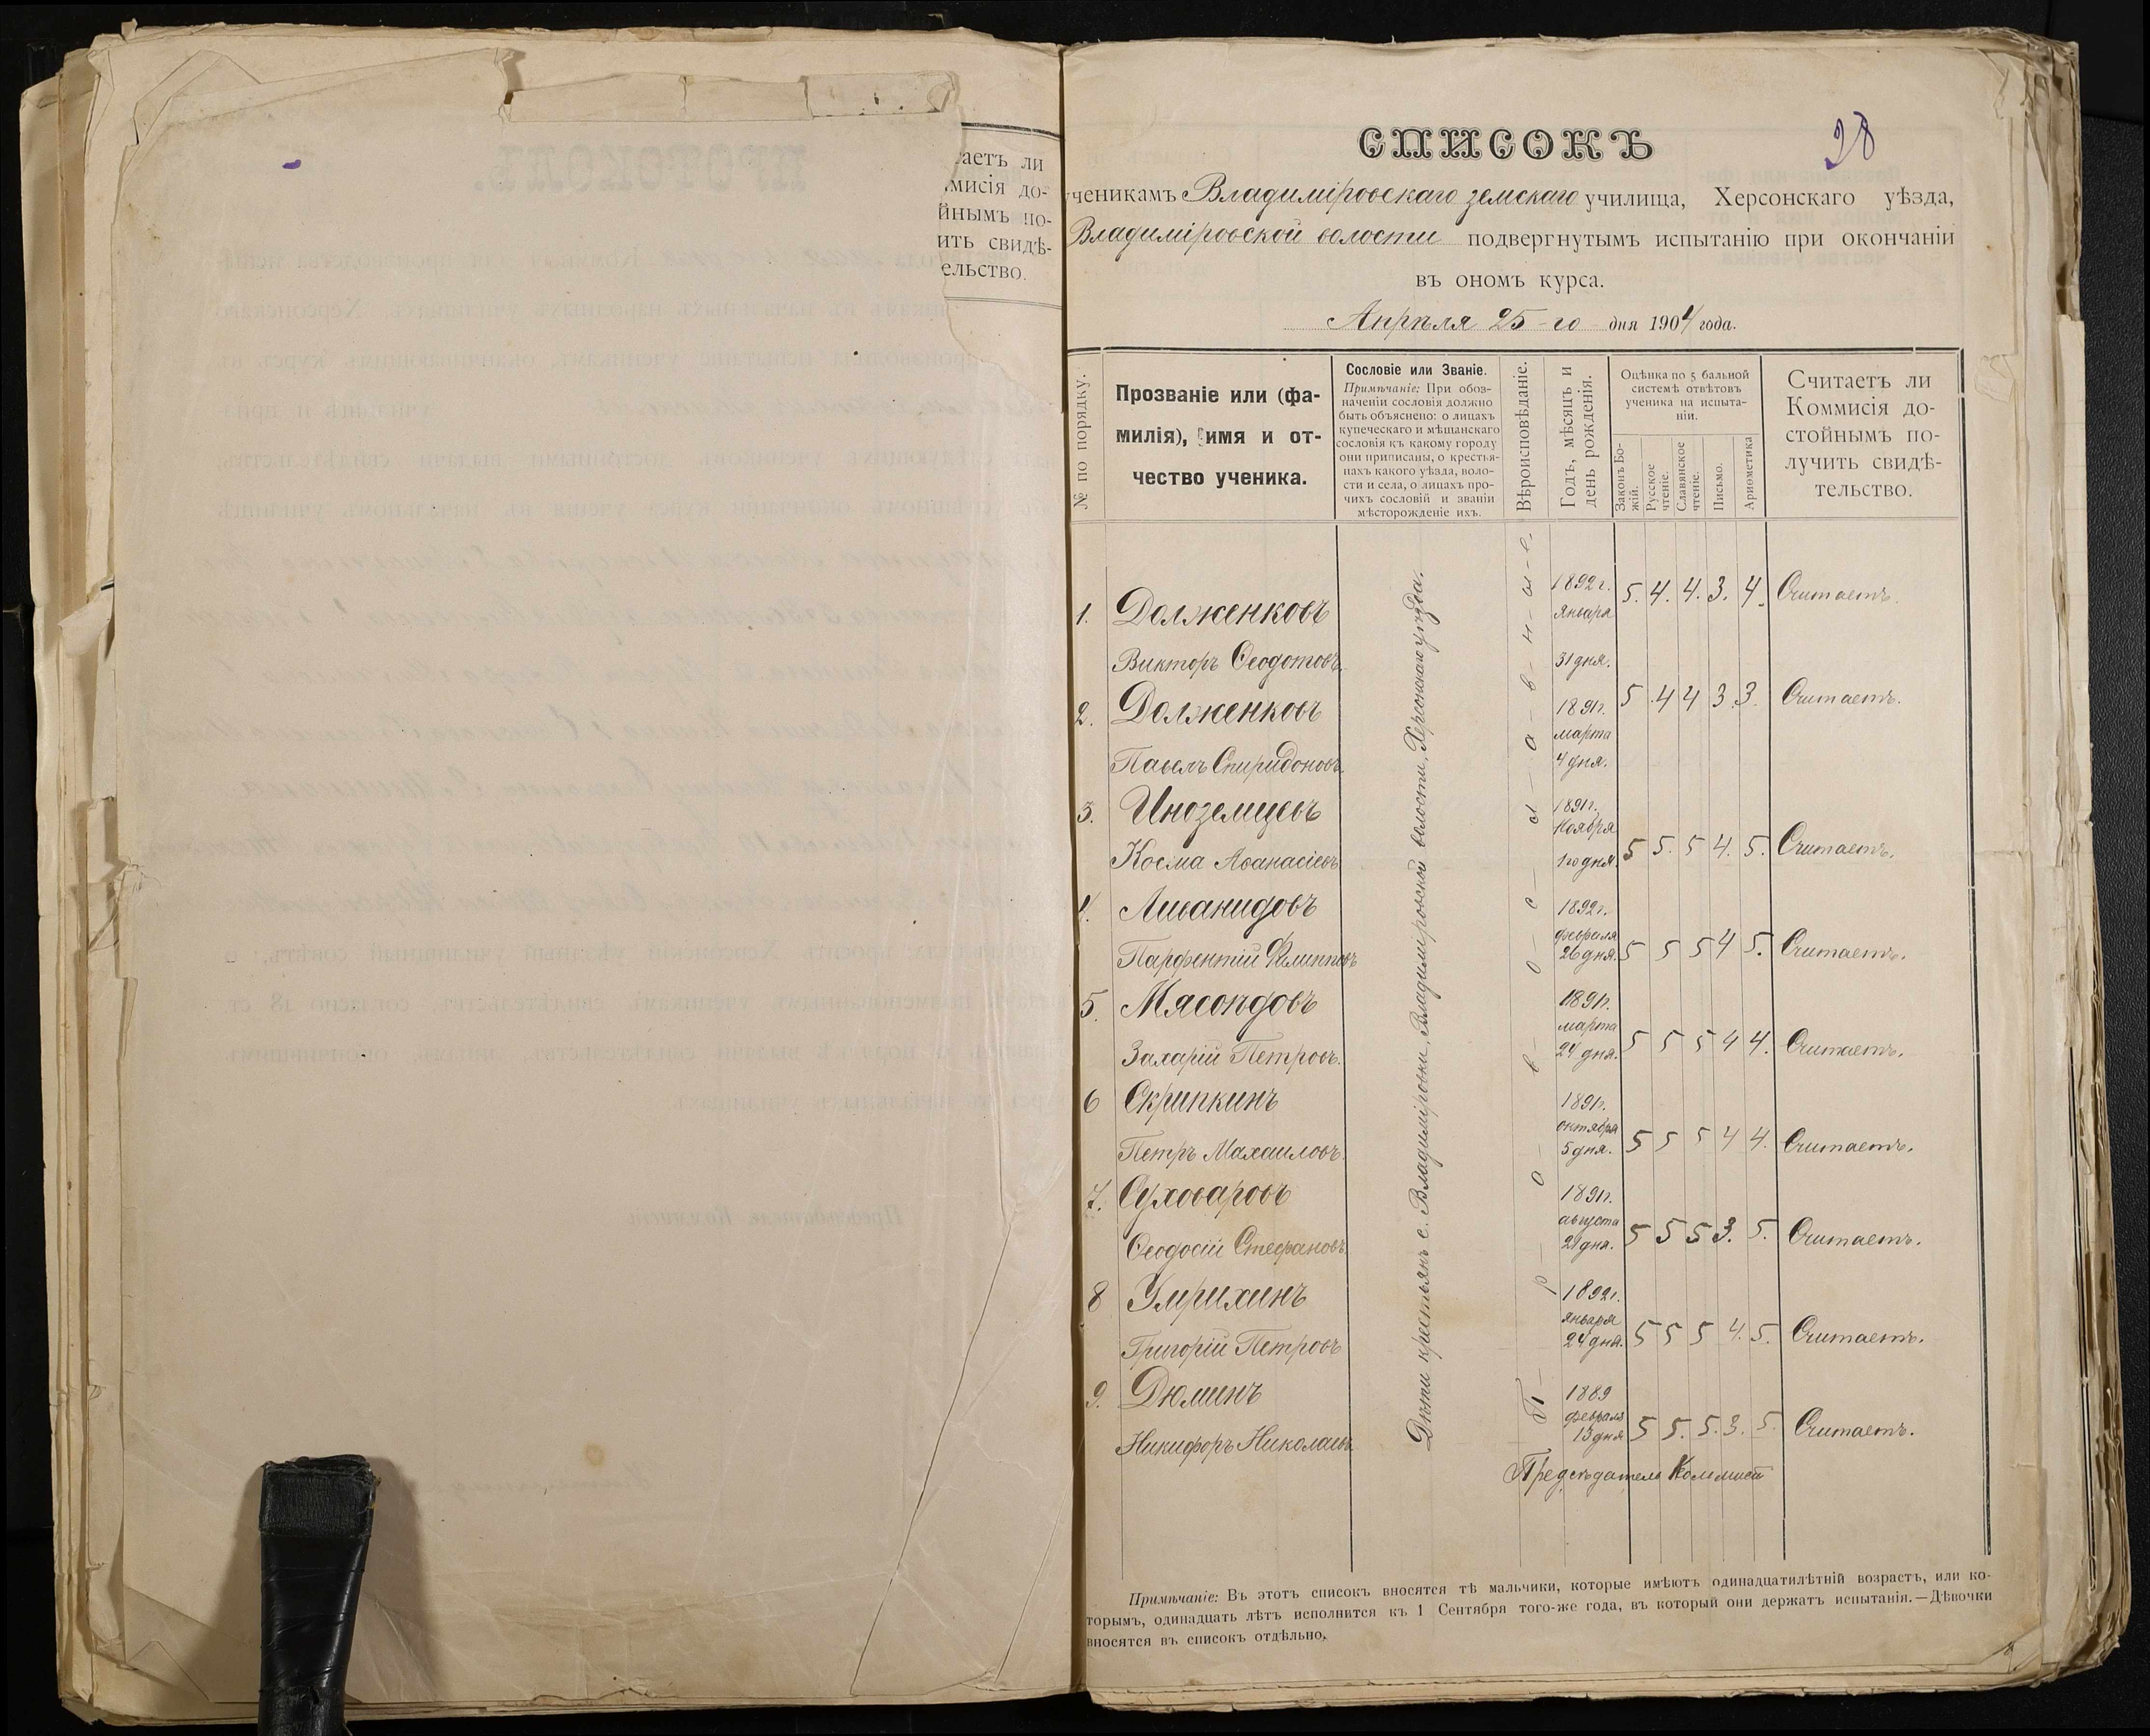 аетъ ли
мисія до-
йнымъ по-
ить свидѣ-
ельство.
СПИСОКЪ
28
ученикамъ Владиміровскаго земскаго училища, Херсонскаго уѣзда,
Владиміровской волости подвергнутымъ испытанію при окончаніи
въ ономъ курса.
Апрѣля 25-го дня 1904 года.
№ по порядку.
Прозваніе или (фа-
милія), имя и от-
чество ученика.
Сословіе или Званіе.
Примѣчаніе: При обоз-
наченіи сословія должно
быть объяснено: о лицахъ
купеческаго и мѣщанскаго
сословія къ какому городу
они приписаны, о крестья-
нахъ какого уѣзда, воло-
сти и села, о лицахъ про-
чихъ сословій и званій
мѣсторожденіе ихъ.
Вѣроисповѣданіе.
Годъ, мѣсяцъ и
день рожденія.
Оцѣнка по 5 бальной
системѣ отвѣтовъ
ученика на испыта-
ніи.
Законъ Бо-
жій.
Русское
чтеніе.
Славянское
чтеніе.
Письмо.
Ариѳметика
Считаетъ ли
Коммисія до-
стойнымъ по-
лучить свидѣ-
тельство.
Дѣти крестьянъ с. Владиміровки, Владиміровской волости, Херсонскаго уѣзда.
П-р-а-в-о-с-л-а-в-н-ы-е.
1. Долженковъ 1892 г. января 5. 4. 4. 3. 4. Считаетъ.
Викторъ Ѳеодотовъ 31 дня.
2. Долженковъ 1891г. марта 5 4 4 3 3. Считаетъ.
Павелъ Спиридоновъ. 4 дня.
3. Иноземцевъ 1891г. Ноября
Косма Аѳанасіевъ 1го дня. 5 5. 5 4. 5. Считаетъ.
4. Ливанидовъ 1892г. февраля
Парфентій Филипповъ 26 дня. 5 5 5 4 5. Считаетъ.
5. Мясоѣдовъ 1891г. марта
Захарій Петровъ. 24 дня. 5 5 5 4 4. Считаетъ.
6 Скрипкинъ 1891г. октября
Петръ Махаиловъ. 5 дня. 5 5 5 4 4. Считаетъ.
7. Суховаровъ 1891г. августа
Ѳеодосій Стефановъ. 21 дня. 5 5 5 3. 5. Считаетъ.
8 Умрихинъ 1892г. января
Григорій Петровъ 24 дня. 5 5 5 4. 5. Считаетъ.
9. Дюминъ 1889 февраля
Никифоръ Николаевъ. 13 дня 5 5. 5. 3. 5. Считаетъ.
Предсѣдатель Коммисіи
Примѣчаніе: Въ этотъ списокъ вносятся тѣ мальчики, которые имѣютъ одинадцатилѣтній возрастъ, или ко-
торымъ, одинадцать лѣтъ исполнится къ 1 Сентября того-же года, въ который они держатъ испытанія.—Дѣвочки
вносятся въ списокъ отдѣльно.